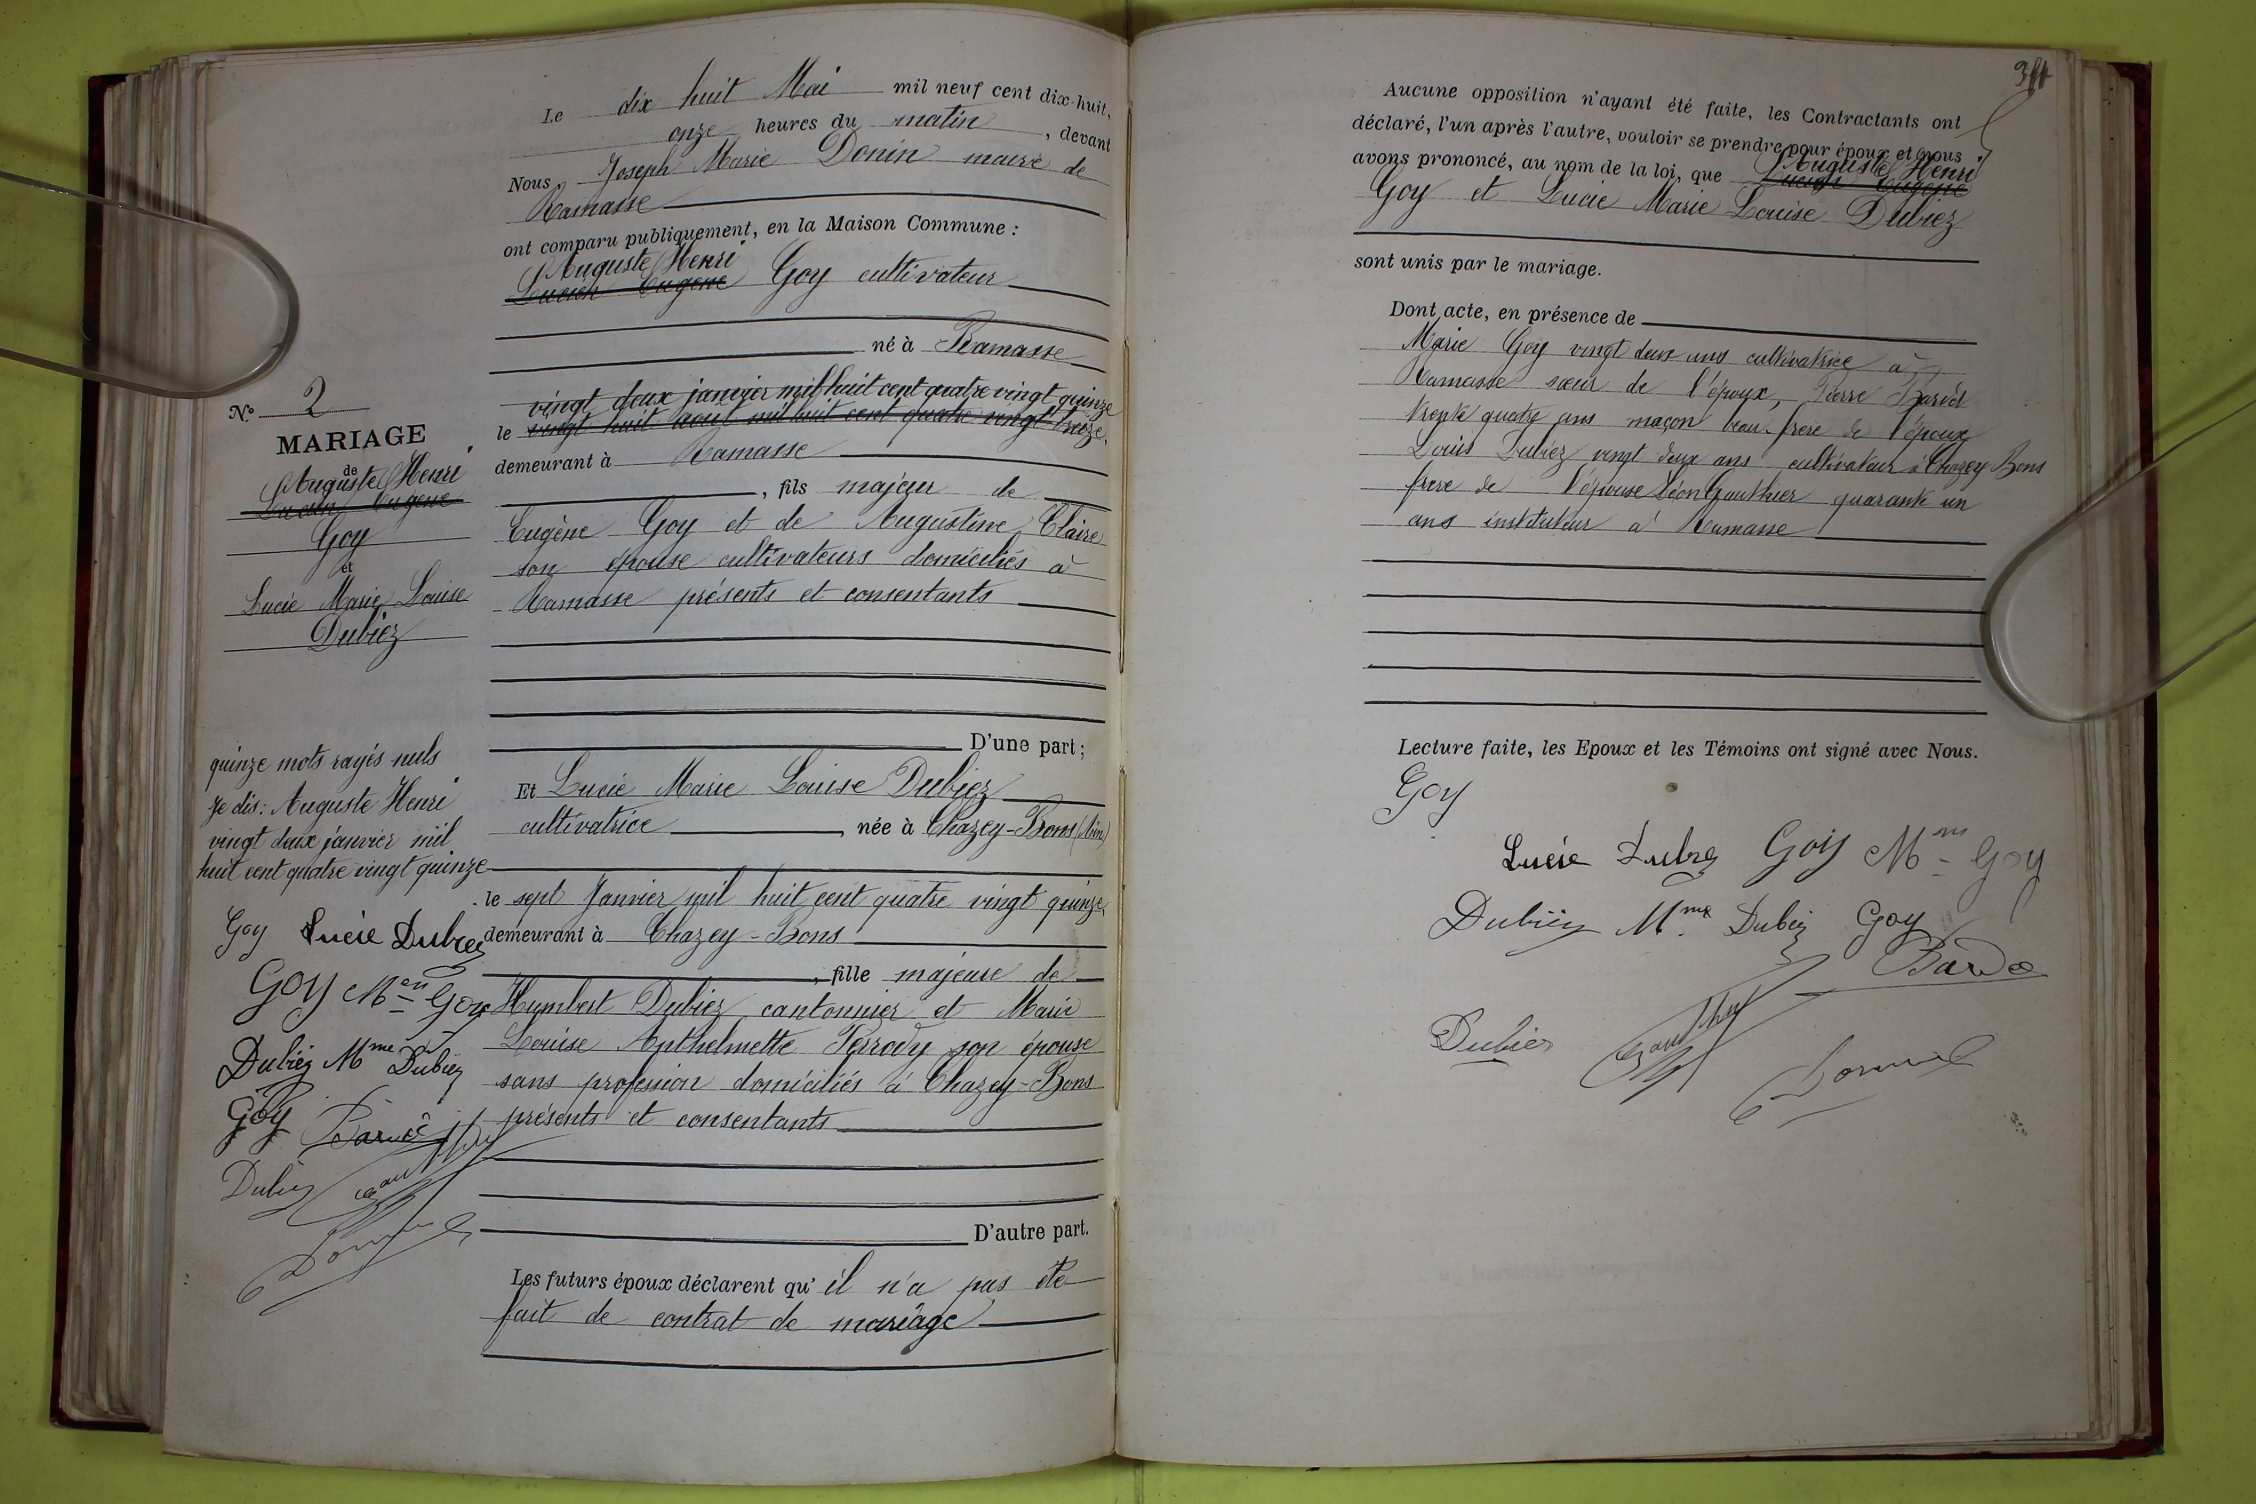 Le dix huit Mai mil neuf cent dix-huit,
onze heures du matin, devant
Nous Joseph Marie Donin maire de
Ramasse
ont comparu publiquement, en la Maison Commune :
Auguste Henri
Lucien Eugène Goy cultivateur
né à Ramasse
vingt deux janvier mil huit cent quatre vingt quinze
le vingt huit aout mil huit cent quatre vingt treize,
demeurant à Ramasse
, fils majeur de
Eugène Goy et de Augustine Claire
son épouse cultivateurs domiciliés à
Ramasse présents et consentants
D'une part ;
Et Lucie Marie Louise Dubiez
cultivatrice, née à Chazey-Bons (Ain)
le sept Janvier mil huit cent quatre vingt quinze,
demeurant à Chazey-Bons
, fille majeure de
Humbert Dubiez cantonnier et Marie
Louise Anthelmette Perrody son épouse
sans profession domiciliés à Chazey-Bons
présents et consentants
D'autre part.
Les futurs époux déclarent qu'il n'a pas été
fait de contrat de mariage
N° 2
MARIAGE
de
Auguste Henri
Lucien Eugène
Goy
et
Lucie Marie Louise
Dubiez
quinze mots rayés nuls
Je dis : Auguste Henri
vingt deux janvier mil
huit cent quatre vingt quinze
Goy Lucie Dubiez
Goy Men Goy
Dubiez Mme Dubiez
Goy Bardè
Dubiez Gauthier
Donin
344
Aucune opposition n'ayant été faite, les Contractants ont
déclaré, l'un après l'autre, vouloir se prendre pour époux et nous
avons prononcé, au nom de la loi, que Auguste Henri
Lucien Eugène
Goy et Lucie Marie Louise Dubiez
sont unis par le mariage.
Dont acte, en présence de
Marie Goy vingt deux ans cultivatrice à
Ramasse sœur de l'époux, Pierre Bardet
trente quatre ans maçon beau-frère de l'époux
Louis Dubiez vingt deux ans cultivateur à Chazey Bons
frère de l'épouse Léon Gauthier quarante un
ans instituteur à Ramasse
Lecture faite, les Epoux et les Témoins ont signé avec Nous.
Goy
Lucie Dubiez Goy Mm Goy
Dubiez Mme Dubiez Goy
Bardè
Dubiez Gauthier Donin